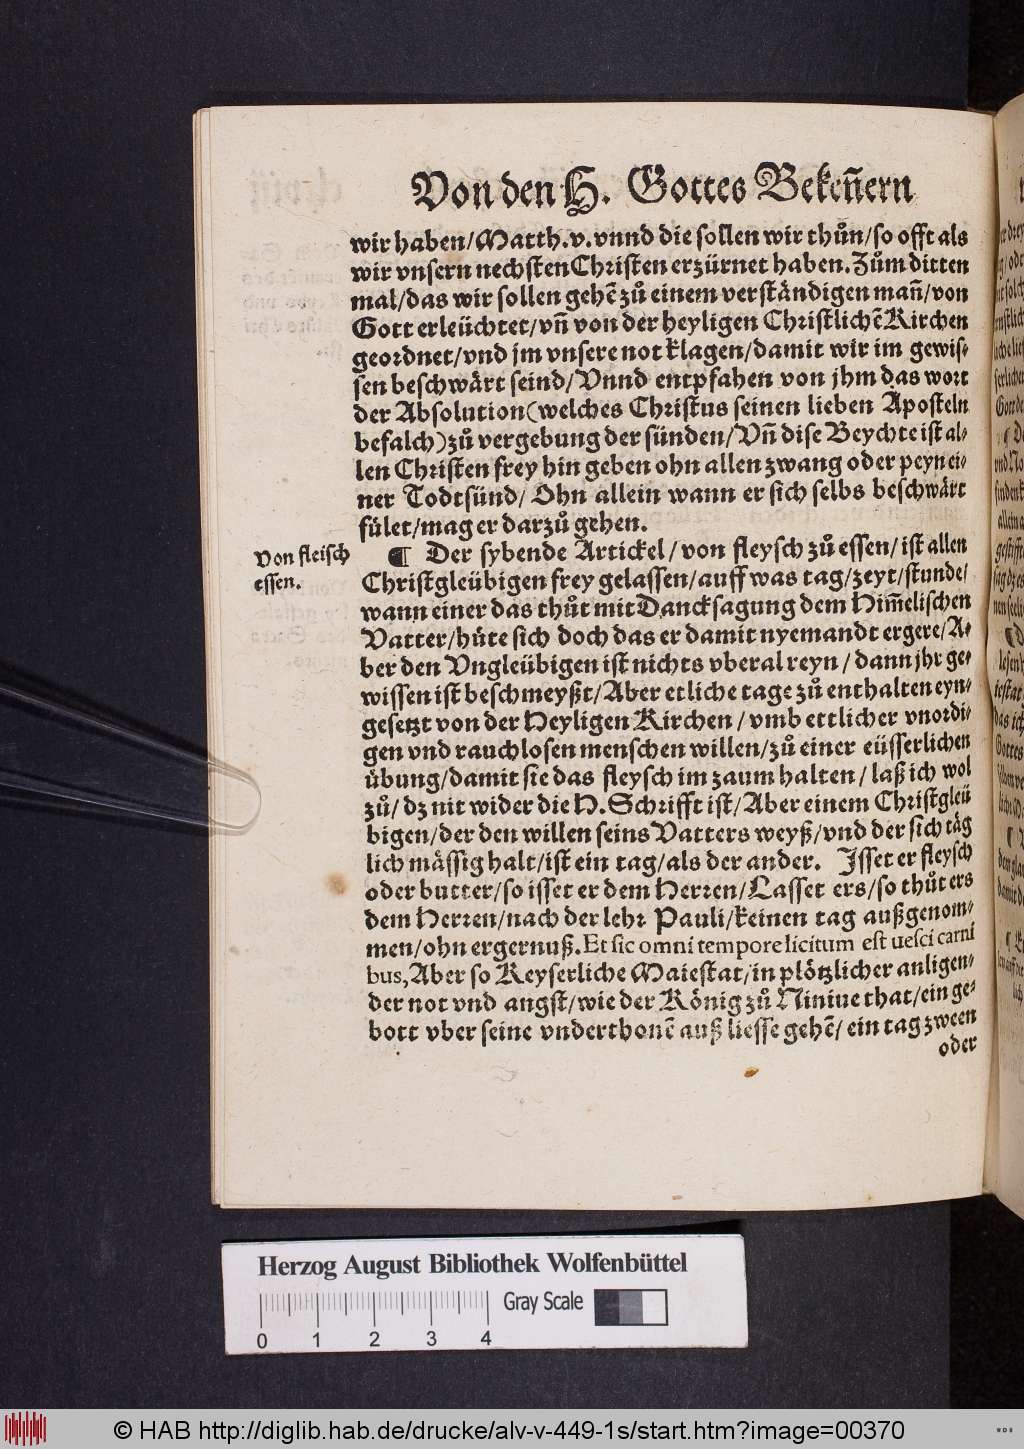 Von den H. Gottes Bekeñern
wir haben/Matth.v.vnnd die sollen wir thůn/so offt als
wir vnsern nechsten Christen erzürnet haben. Zům ditten
mal/das wir sollen gehē zů einem verständigen mañ/von
Gott erleüchtet/vñ von der heyligen Christlichē Kirchen
geordnet/vnd jm vnsere not klagen/damit wir im gewis-
sen beschwärt seind/Vnnd entpfahen von jhm das wort
der Absolution(welches Christus seinen lieben Aposteln
befalch)zů vergebung der sünden/Vñ dise Beychte ist al-
len Christen frey hin geben ohn allen zwang oder peyn ei-
ner Todtsünd/ Ohn allein wann er sich selbs beschwärt
fület/mag er darzů gehen.
Von fleisch
essen.
¶ Der sybende Artickel/von fleysch zů essen/ist allen
Christgleübigen frey gelassen/auff was tag/zeyt/stunde/
wann einer das thůt mit Dancksagung dem Him̃elischen
Vatter/hüte sich doch das er damit nyemandt ergere/A-
ber den Vngleübigen ist nichts vberal reyn/dann jhr ge-
wissen ist beschmeyßt/Aber etliche tage zů enthalten eyn-
gesetzt von der Heyligen Kirchen/vmb ettlicher vnordi-
gen vnd rauchlosen menschen willen/zů einer eüsserlichen
übung/damit sie das fleysch im zaum halten/laß ich wol
zů/dz nit wider die H. Schrifft ist/Aber einem Christgleü
bigen/der den willen seins Vatters weyß/vnd der sich täg
lich mässig halt/ist ein tag/als der ander. Isset er fleysch
oder butter/so isset er dem Herren/Lasset ers/so thůt ers
dem Herren/nach der lehr Pauli/keinen tag außgenom-
men/ohn ergernuß. Et sic omni tempore licitum est uesci carni
bus, Aber so Keyserliche Maiestat/in plötzlicher anligen-
der not vnd angst/wie der König zů Niniue that/ein ge-
bott vber seine vnderthonē auß liesse gehē/ein tag zween
oder
Herzog August Bibliothek Wolfenbüttel
0 1 2 3 4 Gray Scale
© HAB http://diglib.hab.de/drucke/alv-v-449-1s/start.htm?image=00370